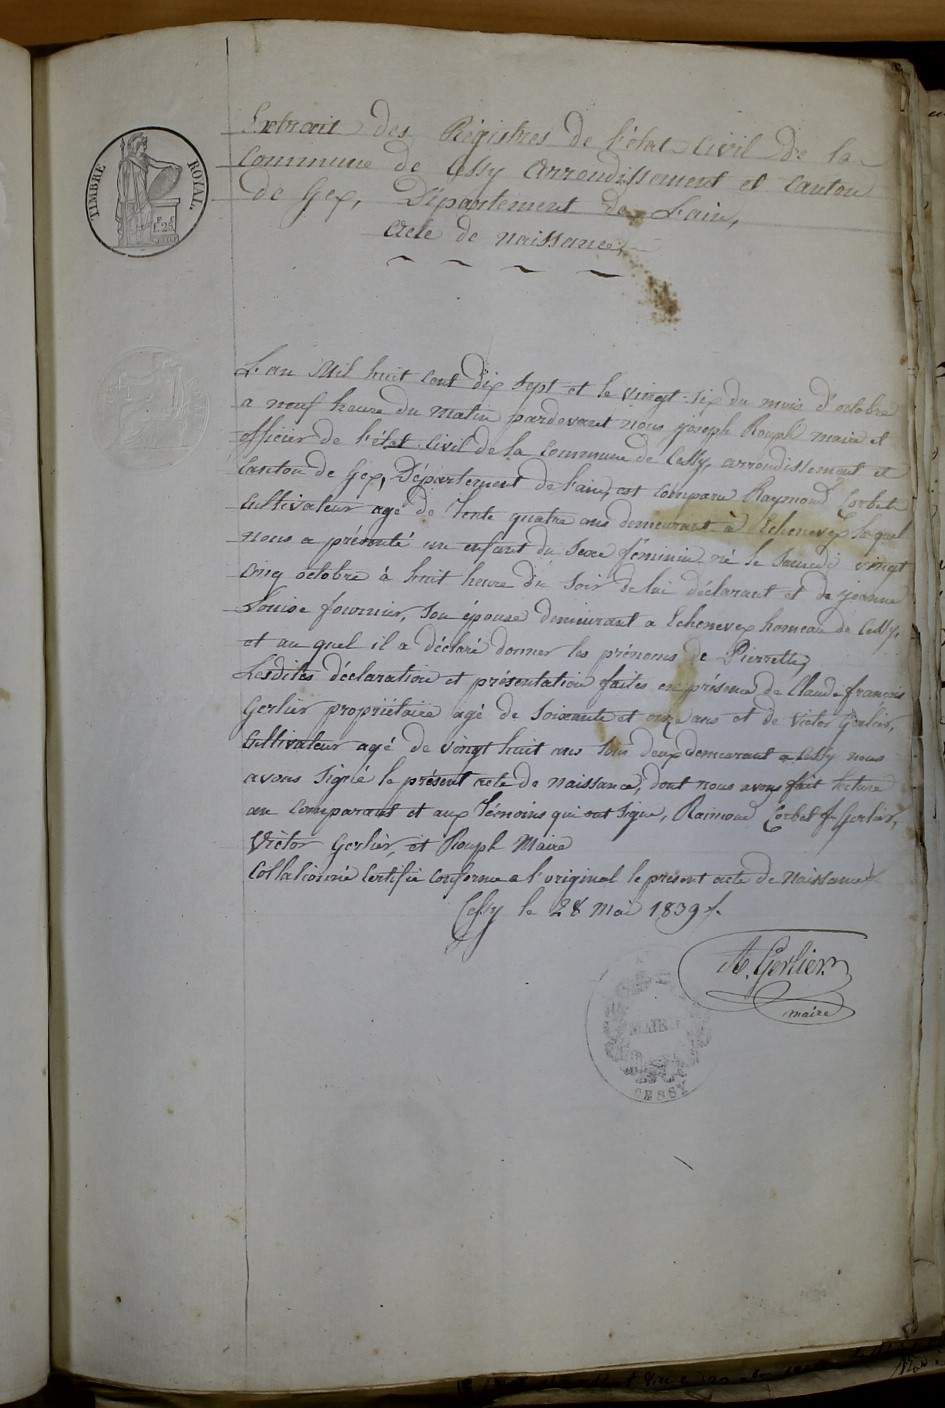 TIMBRE ROYAL.
Extrait des Régistres de l'état Civil de la
Commune de Cessy Arrondissement et Canton
de Gex, Département de L'ain,
Acte de naissance,
L'an Mil huit Cent dix Sept et le vingt-six du mois d'octobre
a neuf heure du matin pardevant nous joseph Rouph maire et
officier de l'état Civil de la Commune de Cessy, arrondissement et
Canton de Gex, Département de l'ain, est Comparu Raymond Corbet
Cultivateur agé de Trente quatre ans demeurant à Echenevex lequel
nous a présenté un enfant du Sexe féminin né le Samedi vingt
Cinq octobre à huit heure du Soir de lui déclarant et de jeanne
Louise fournier, Son épouse demeurant a Echenevex hameau de Cessy,
et au quel il a déclaré donner les prénoms de Pierrette,
Lesdites déclaration et présentation faites en présence de Claude françois
Gerlier propriétaire agé de Soixante et onze ans et de Victor Gerlier,
Cultivateur agé de vingt huit ans tous deux demeurant a Cessy nous
avons Signé le présent acte de naissance, dont nous avons fait lecture
au Comparant et aux Témoins qui ont Signe, Raimond Corbet f. Gerlier,
Victor Gerlier, et Rouph Maire
Collationné Certifié Conforme a l'original le présent acte de Naissance
Cessy le 28 Mai 1839
A. Gerlier
maire
MAIRIE
CESSY